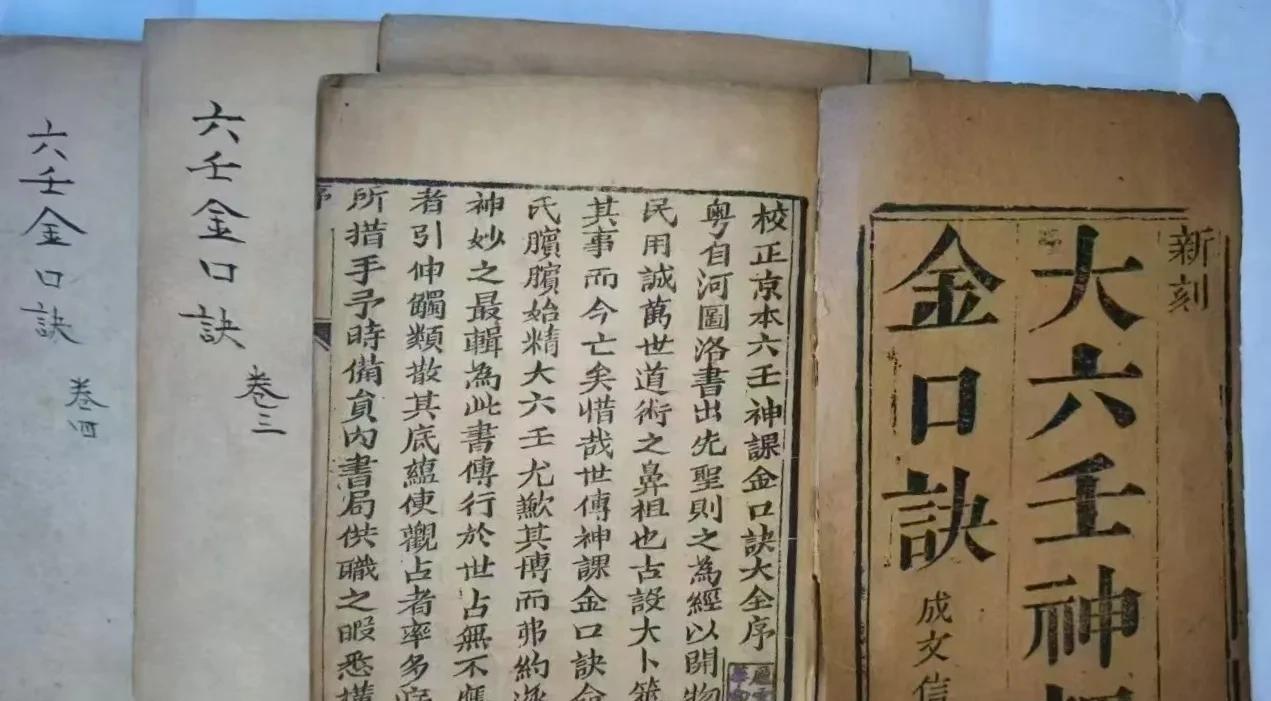 新刻
大六壬神
金口訣
成文信
校正京本六壬神課金口訣大全序
粤自河圖洛書出先聖則之為經以開物
民用誠萬世道術之鼻祖也古設大卜筮
其事而今亡矣惜哉世傳神課金口訣
氏臏臏始精大六壬尤歉其博而弗約
神妙之最輯為此書傳行於世占無不應
者引伸觸類散其底蘊使觀占者率多
所措手予時備員內書局供職之暇悉
序
六壬金口訣
卷三
六壬金口訣
卷四